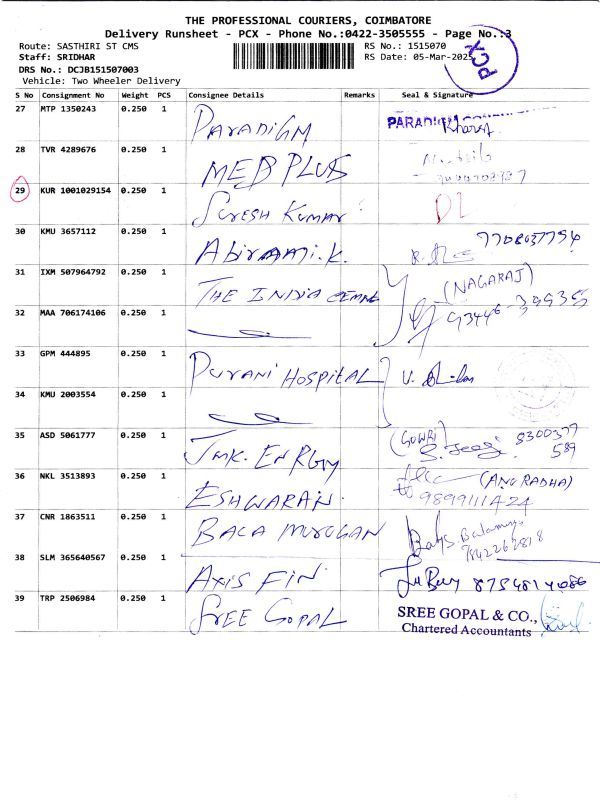 THE PROFESSIONAL COURIERS, COIMBATORE
Delivery Runsheet - PCX - Phone No.:0422-3505555 - Page No.:3
Route: SASTHIRI ST CMS RS No.: 1515070
Staff: SRIDHAR RS Date: 05-Mar-2025
PCX
DRS No.: DCJB151507003
Vehicle: Two Wheeler Delivery
S No Consignment No Weight PCS Consignee Details Remarks Seal & Signature
27 MTP 1350243 0.250 1 PARADIGM PARADIGM
28 TVR 4289676 0.250 1 MED PLUS
29 KUR 1001029154 0.250 1 SURESH KUMAR DL
30 KMU 3657112 0.250 1 Abirami.K. 7708037794
31 IXM 507964792 0.250 1 THE INDIA CEMNE (NAGARAJ)
93446-39935
32 MAA 706174106 0.250 1
33 GPM 444895 0.250 1 PURANI HOSPITAL
34 KMU 2003554 0.250 1
35 ASD 5061777 0.250 1 JMK. ENERGY (GOWRI) 8300377
589
36 NKL 3513893 0.250 1 ESHWARAN. (ANURADHA)
9899111424
37 CNR 1863511 0.250 1 BALA MURUGAN
7842262818
38 SLM 365640567 0.250 1 AXIS FIN 8754814086
39 TRP 2506984 0.250 1 SREE GOPAL SREE GOPAL & CO.,
Chartered Accountants